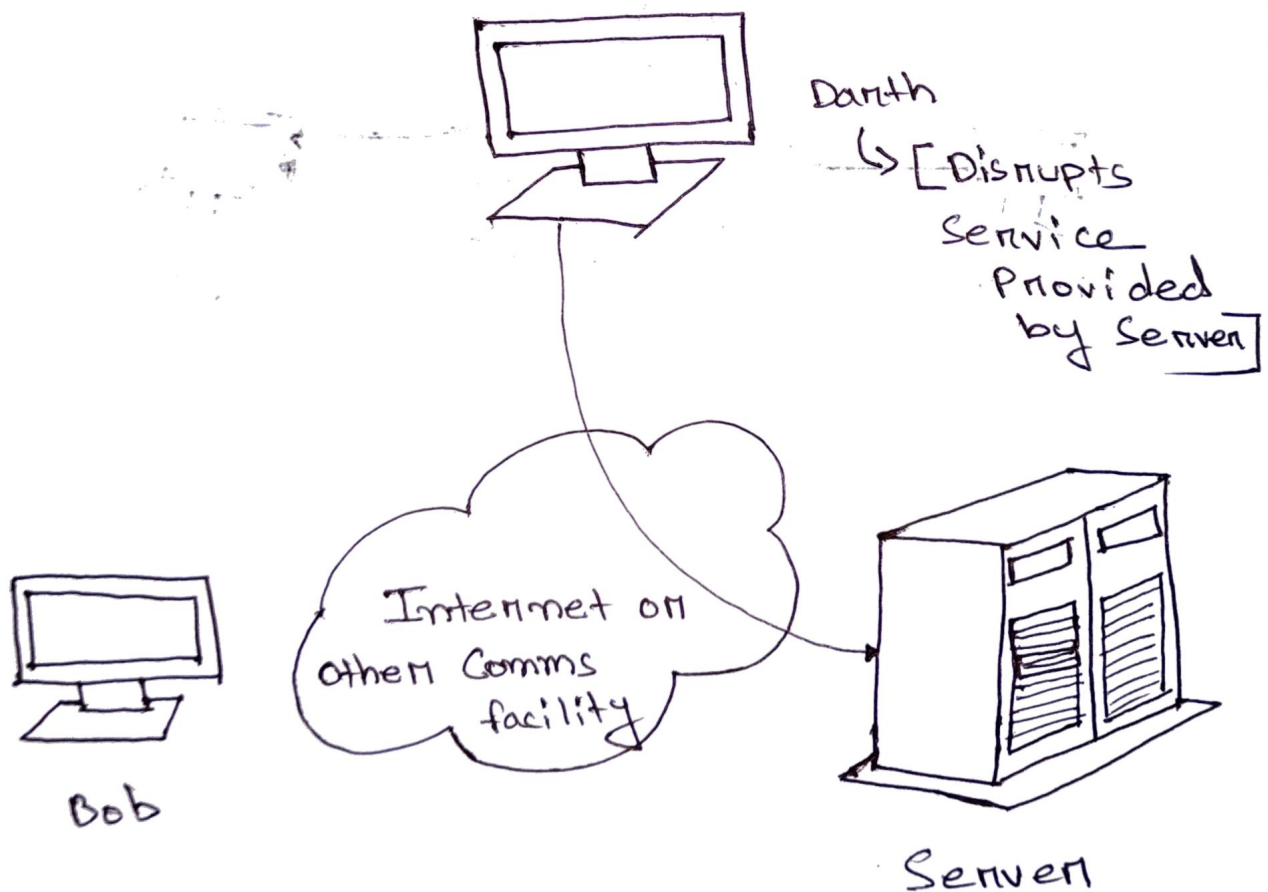 Darth
↳ [Disrupts
Service
Provided
by Server]
Internet or
other Comms
facility
Bob
Server